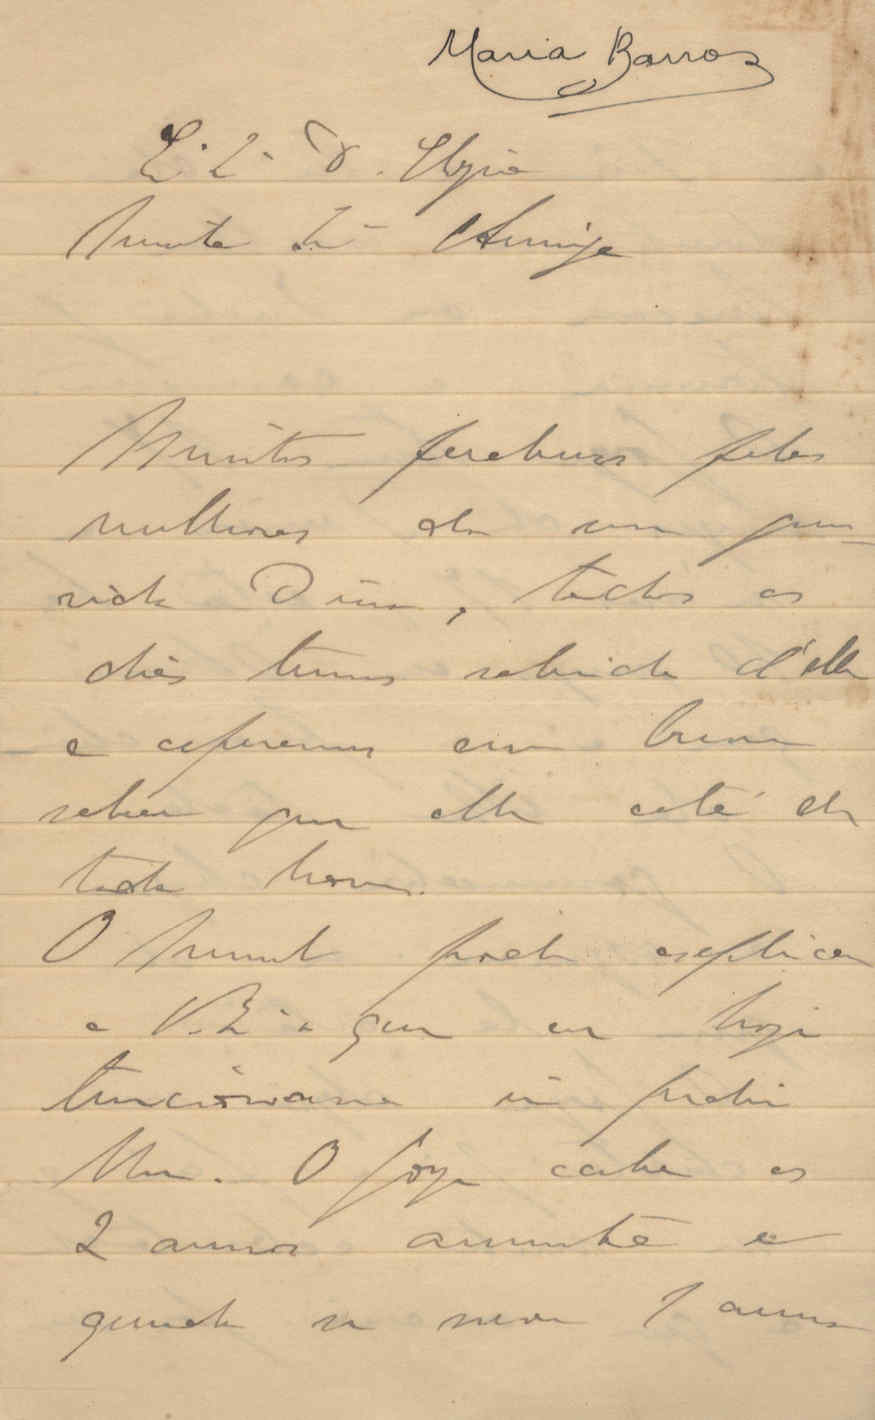 Maria Barros
D. Elyzia
Muito Amiga
Muitos parabens pelas
melhoras da sua que-
rida Dina, todos os
dias temos sabido d'ella
e esperamos em breve
saber que ella está de
toda boa.
O pode explicar
a V. Ex.a que eu hoje
tencionava ir pedir
lhe. O Jorge acaba os
2 annos amanhã e
quando se 1 anno